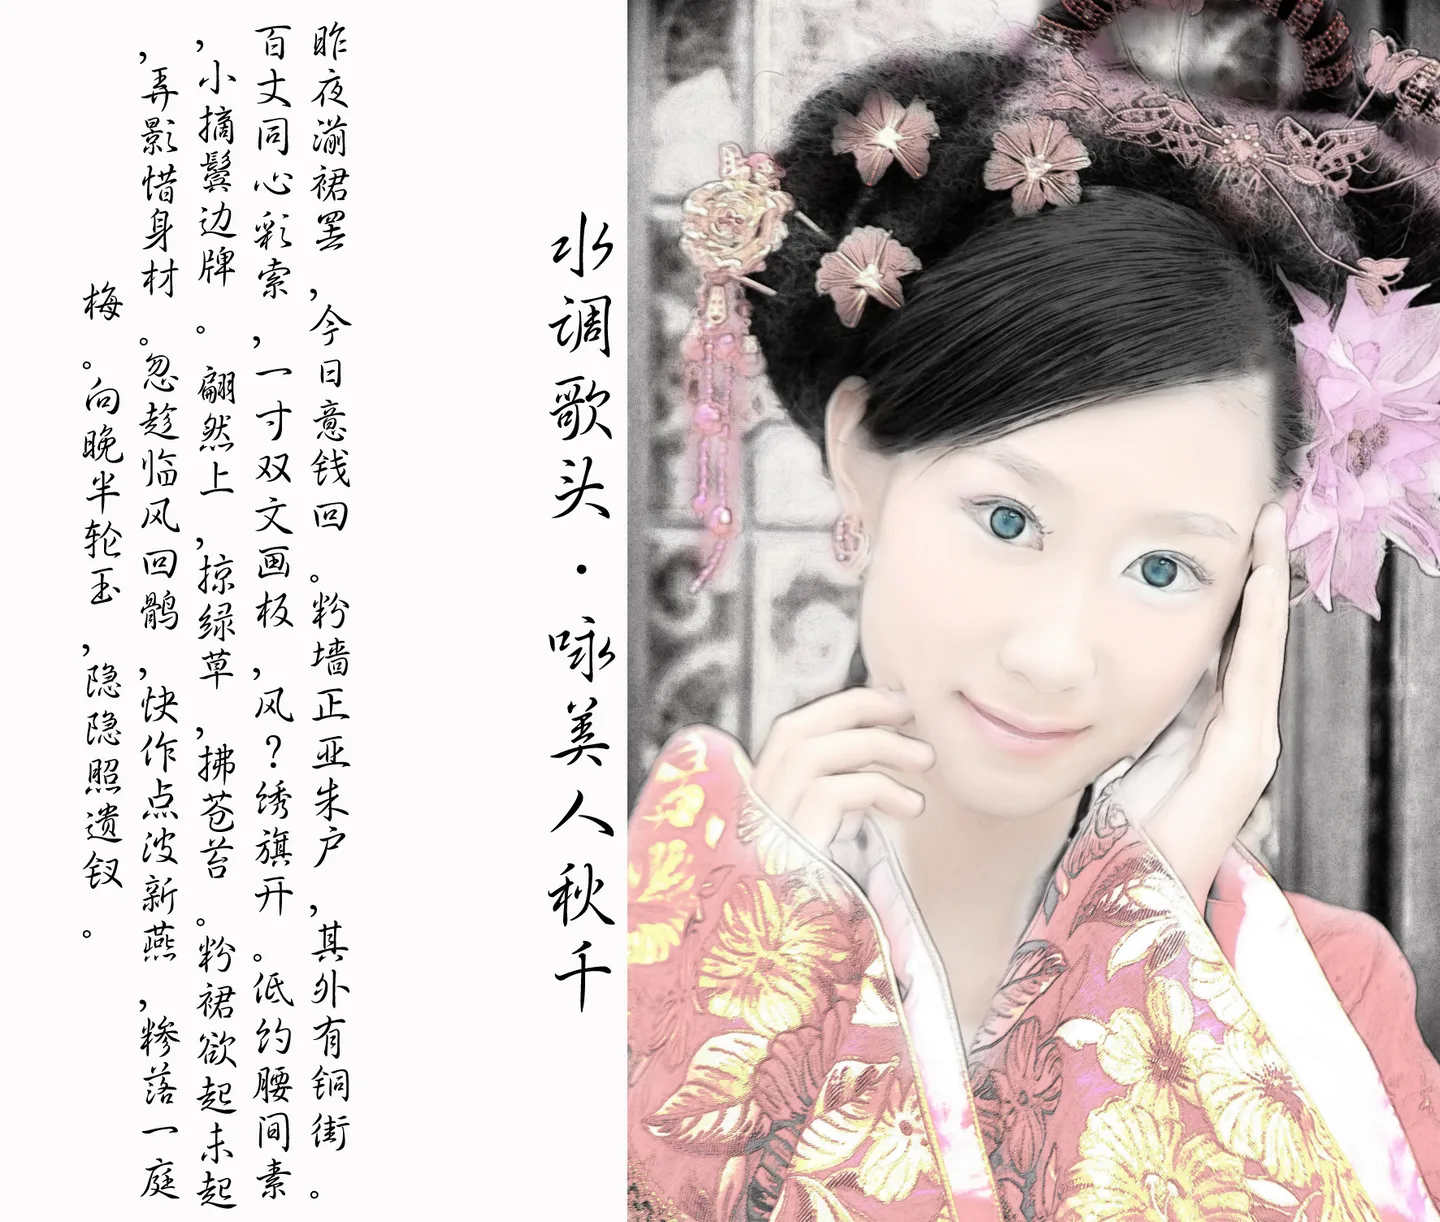 水调歌头·咏美人秋千
昨夜湔裙罢，今日意钱回。粉墙正亚朱户，其外有铜街。
百丈同心彩索，一寸双文画板，风？绣旗开。低约腰间素
，小摘鬓边牌。翩然上，掠绿草，拂苍苔。粉裙欲起未起
，弄影惜身材。忽趁临风回鹘，快作点波新燕，糁落一庭
梅。向晚半轮玉，隐隐照遗钗。